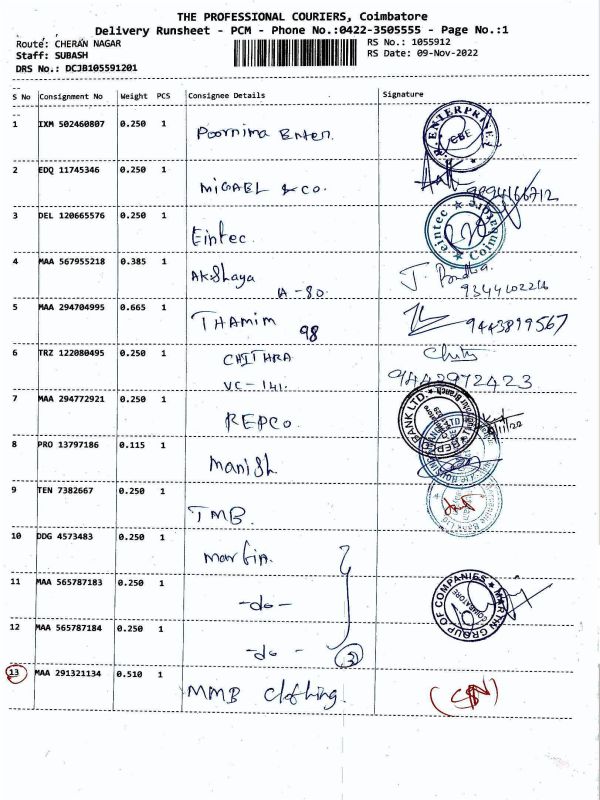 THE PROFESSIONAL COURIERS, Coimbatore
Delivery Runsheet - PCM - Phone No.:0422-3505555 - Page No.:1
Route: CHERAN NAGAR RS No.: 1055912
Staff: SUBASH RS Date: 09-Nov-2022
DRS No.: DCJB105591201
S No Consignment No Weight PCS Consignee Details Signature
1 IXM 502460807 0.250 1 Poornima Enter. R. ENTERPRISES CBE
2 EDQ 11745346 0.250 1 MIGAEL & CO. 9894166712
3 DEL 120665576 0.250 1 Eintec. eintec Coimbatore
4 MAA 567955218 0.385 1 Akshaya
A-80
5 MAA 294704995 0.665 1 THAMIM 98 9443899567
6 TRZ 122080495 0.250 1 CHITHRA
VC-141. 9442972423
7 MAA 294772921 0.250 1 REPCO. REPCO BANK LTD. Branch
8 PRO 13797186 0.115 1 Manish
9 TEN 7382667 0.250 1 TMB.
10 DDG 4573483 0.250 1 Martin.
11 MAA 565787183 0.250 1 -do- MARTIN GROUP OF COMPANIES COIMBATORE
12 MAA 565787184 0.250 1 -do- 3
13 MAA 291321134 0.510 1 MMB Clothing.